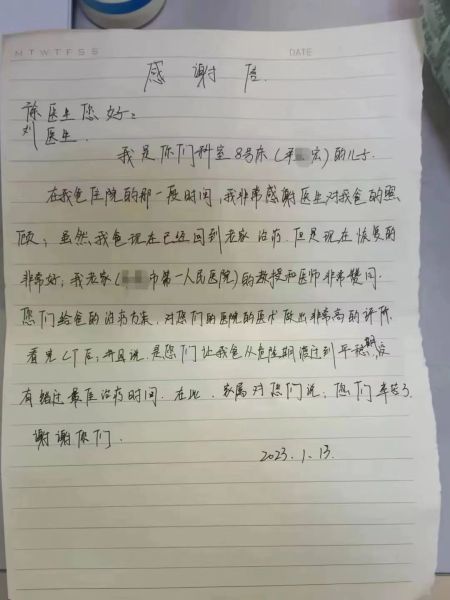 MTWTFSS DATE
感谢信
徐医生您好:
刘医生.
我是你们科室8号床(平 宏)的儿子.
在我爸住院的那一段时间,我非常感谢医生对我爸的照
顾;虽然我爸现在已经回到老家治疗.但是现在恢复的
非常好,我老家( 市第一人民医院)的教授和医师非常赞同
您们给爸的治疗方案,对您们的医院的医术做出非常高的评价.
看完CT后,并且说,是您们让我爸从危险期渡过到平稳期,没
有错过最佳治疗时间.在此,家属对您们说:您们辛苦了
谢谢你们.
2023.1.13.